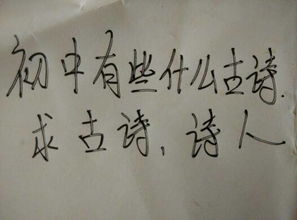 初中有些什么古诗.
求古诗、诗人